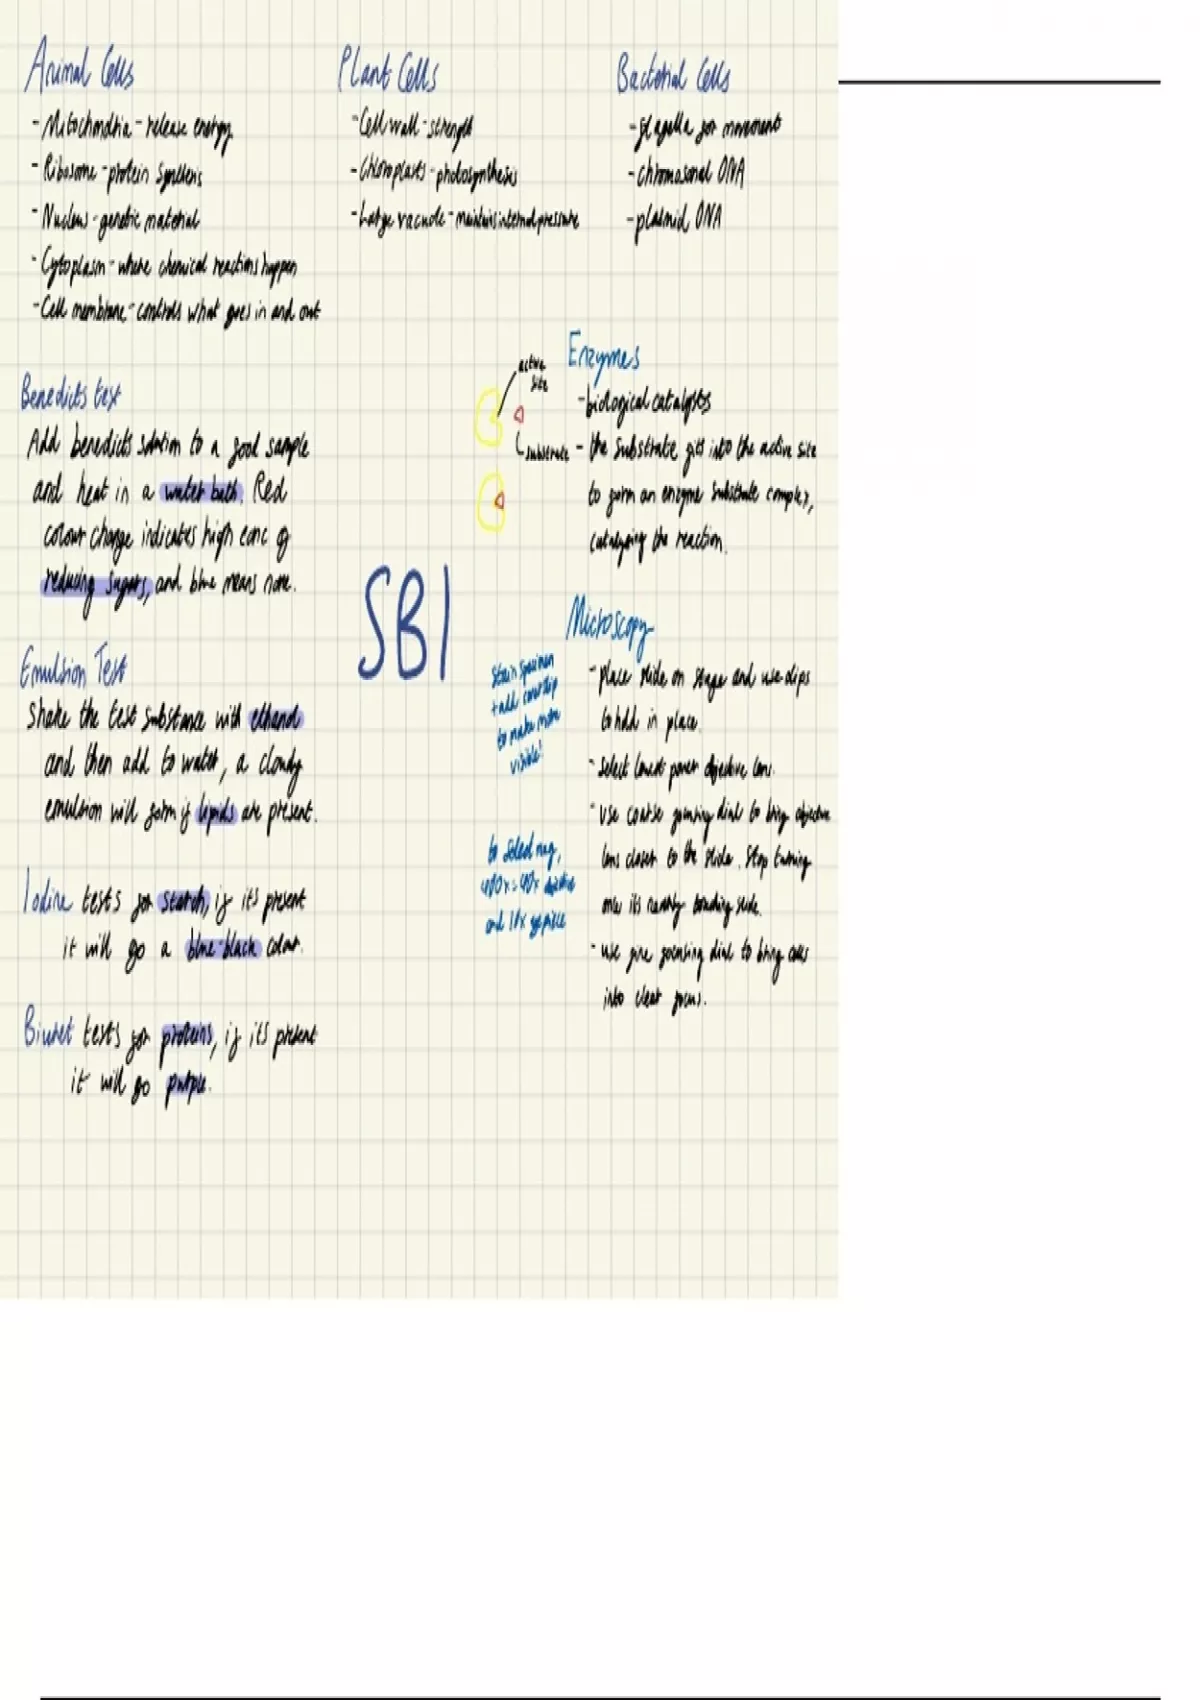 Animal Cells
- Mitochondria - release energy
- Ribosome - protein synthesis
- Nucleus - genetic material
- Cytoplasm - where chemical reactions happen
- Cell membrane - controls what goes in and out
Plant Cells
- Cell wall - strength
- Chloroplasts - photosynthesis
- Large vacuole - maintains internal pressure
Bacterial Cells
- flagella for movement
- chromosonal DNA
- plasmid DNA
Benedicts test
Add benedicts solution to a food sample
and heat in a water bath. Red
colour change indicates high conc of
reducing sugars, and blue means none.
Emulsion Test
Shake the test substance with ethanol
and then add to water, a cloudy
emulsion will form if lipids are present.
Iodine tests for starch, if it's present
it will go a blue-black colour.
Biuret tests for proteins, if it's present
it will go purple.
SB1
active
site
substrate
Enzymes
- biological catalysts
- the substrate fits into the active site
to form an enzyme substrate complex,
catalysing the reaction.
Microscopy
- place slide on stage and use clips
to hold in place.
- Select lowest power objective lens.
- Use coarse focusing dial to bring objective
lens closer to the slide. Stop turning
once it's nearly touching slide.
- Use fine focusing dial to bring cells
into clear focus.
stain specimen
+ add coverslip
to make more
visible!
to select mag,
400x = 40x objective
and 10x eyepiece